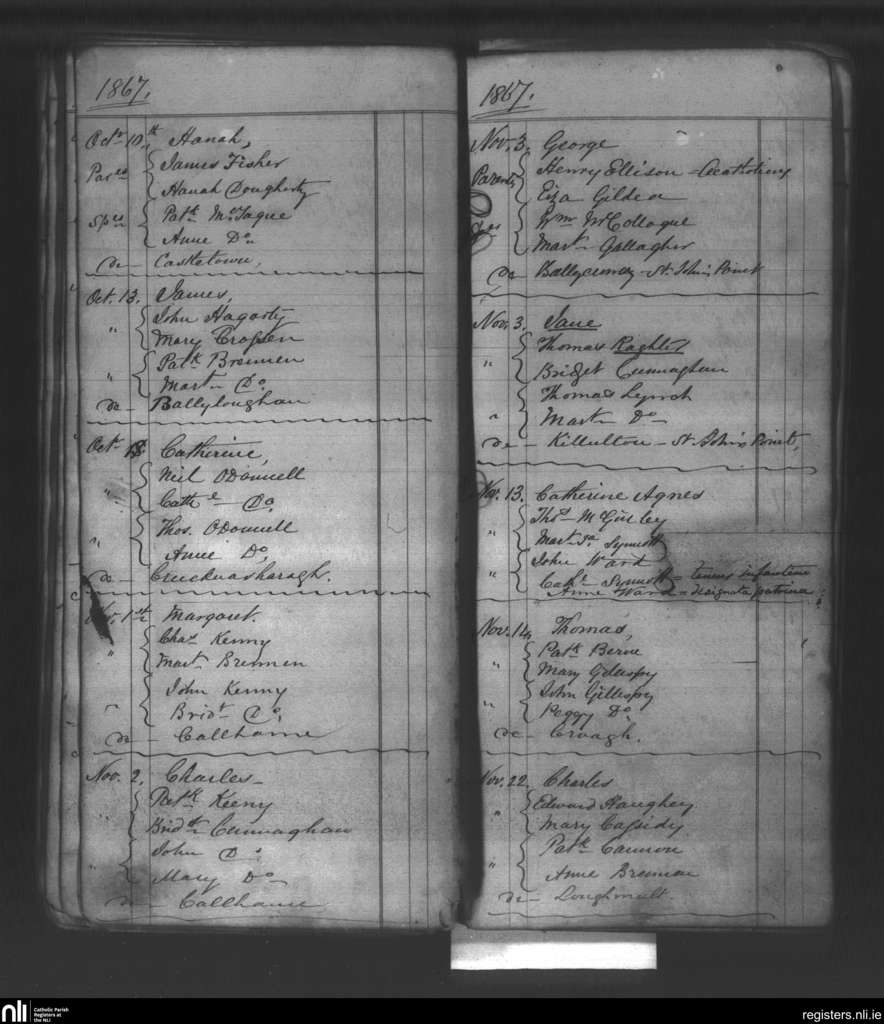 1867.
Octr 10th Hanah,
Pares James Fisher
Hanah Dougherty
Spes Patk McTague
Anne Do
de Castletown,
Oct. 13. James,
" John Hagarty
Mary
" Patk Brennen
Mart Do.
de Ballyloughan
Oct. 18. Catherine,
" Neil ODonnell
Cathe Do.
" Thos. ODonnell
Anne Do,
de
Nov. 1st Margaret.
" Chas Kenny
Mart Brennen
" John Kenny
Bridt Do,
de Callhame
Nov. 2, Charles
Patk Keeny
Bridt Cunnaghan
" John Do
Mary Do
de Callhame
1867.
Nov. 3, George
Parents Henry Ellison =
Eiza Gildea
Spes Wm McCollogue
Mart Gallagher
de St. John's Point
Nov. 3. Jane
" Thomas
Bridget Cunnaghan
Thomas Lynch
" Mart Do
de Killultan - St John's Point,
Nov. 13. Catherine Agnes
" Thos McGinley
Mart Sa Synnott
John Ward
" Cathe Synnott = tenens infantem
Anne Ward = designata patrina
Nov. 14, Thomas,
" Patk Berne
Mary Gillespy
" John Gillespy
Peggy Do
de Croagh.
Nov. 22. Charles
" Edward Haughey
Mary Cassidy
" Patk Cannon
Anne Brennan
de Loughmult.
nli
Catholic Parish
Registers at
the NLI
registers.nli.ie